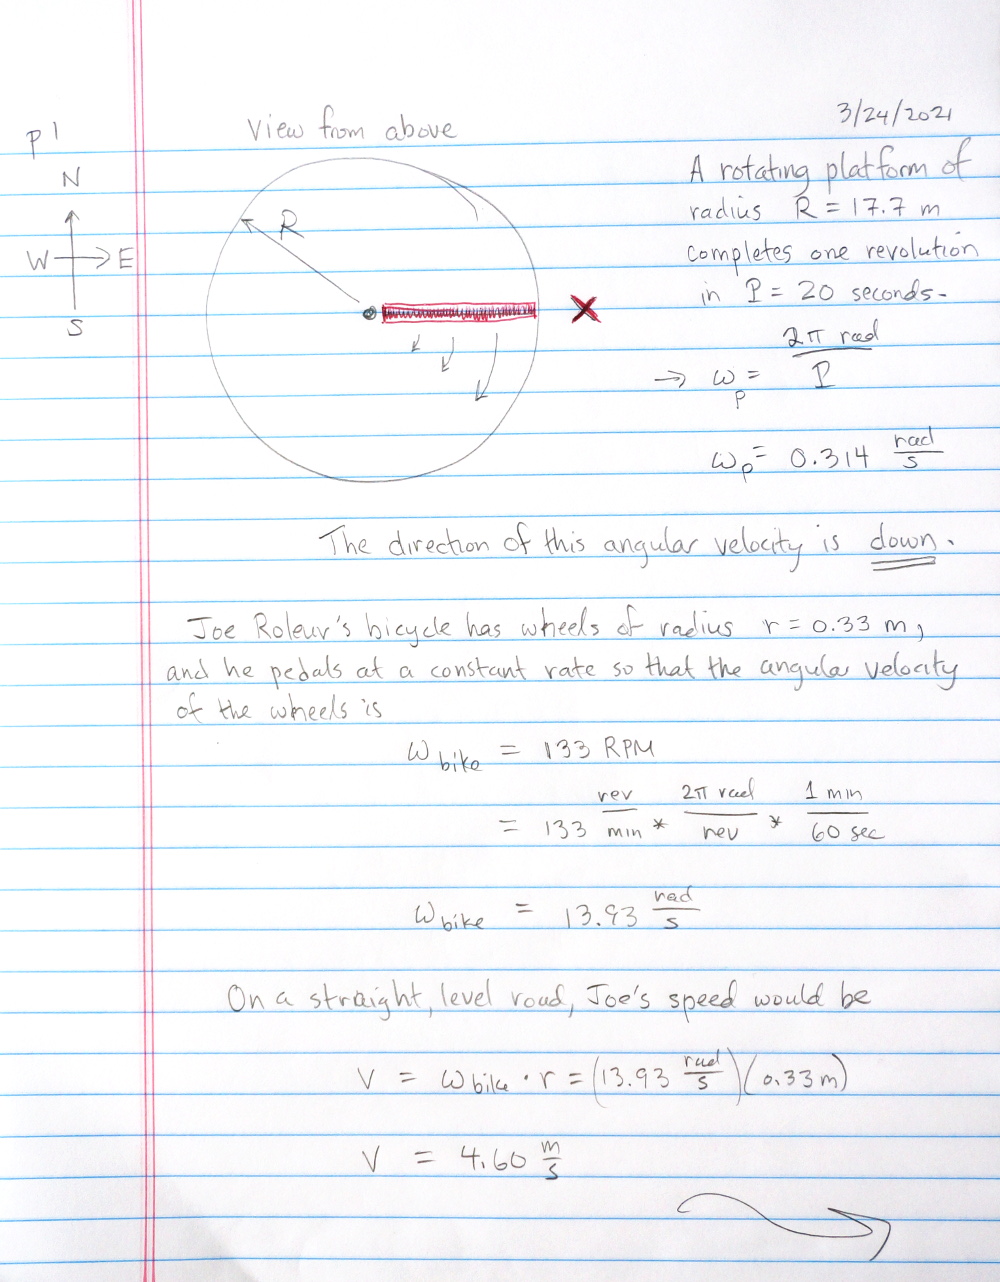 3/24/2021
p1
View from above
N
W E
S
R
A rotating platform of
radius R = 17.7 m
completes one revolution
in P = 20 seconds.
→ ω_p = 2π rad / P
ω_p = 0.314 rad/s
The direction of this angular velocity is down.
Joe Roleur's bicycle has wheels of radius r = 0.33 m,
and he pedals at a constant rate so that the angular velocity
of the wheels is
ω_bike = 133 RPM
= 133 rev/min * 2π rad/rev * 1 min/60 sec
ω_bike = 13.93 rad/s
On a straight, level road, Joe's speed would be
V = ω_bike · r = (13.93 rad/s)(0.33 m)
V = 4.60 m/s